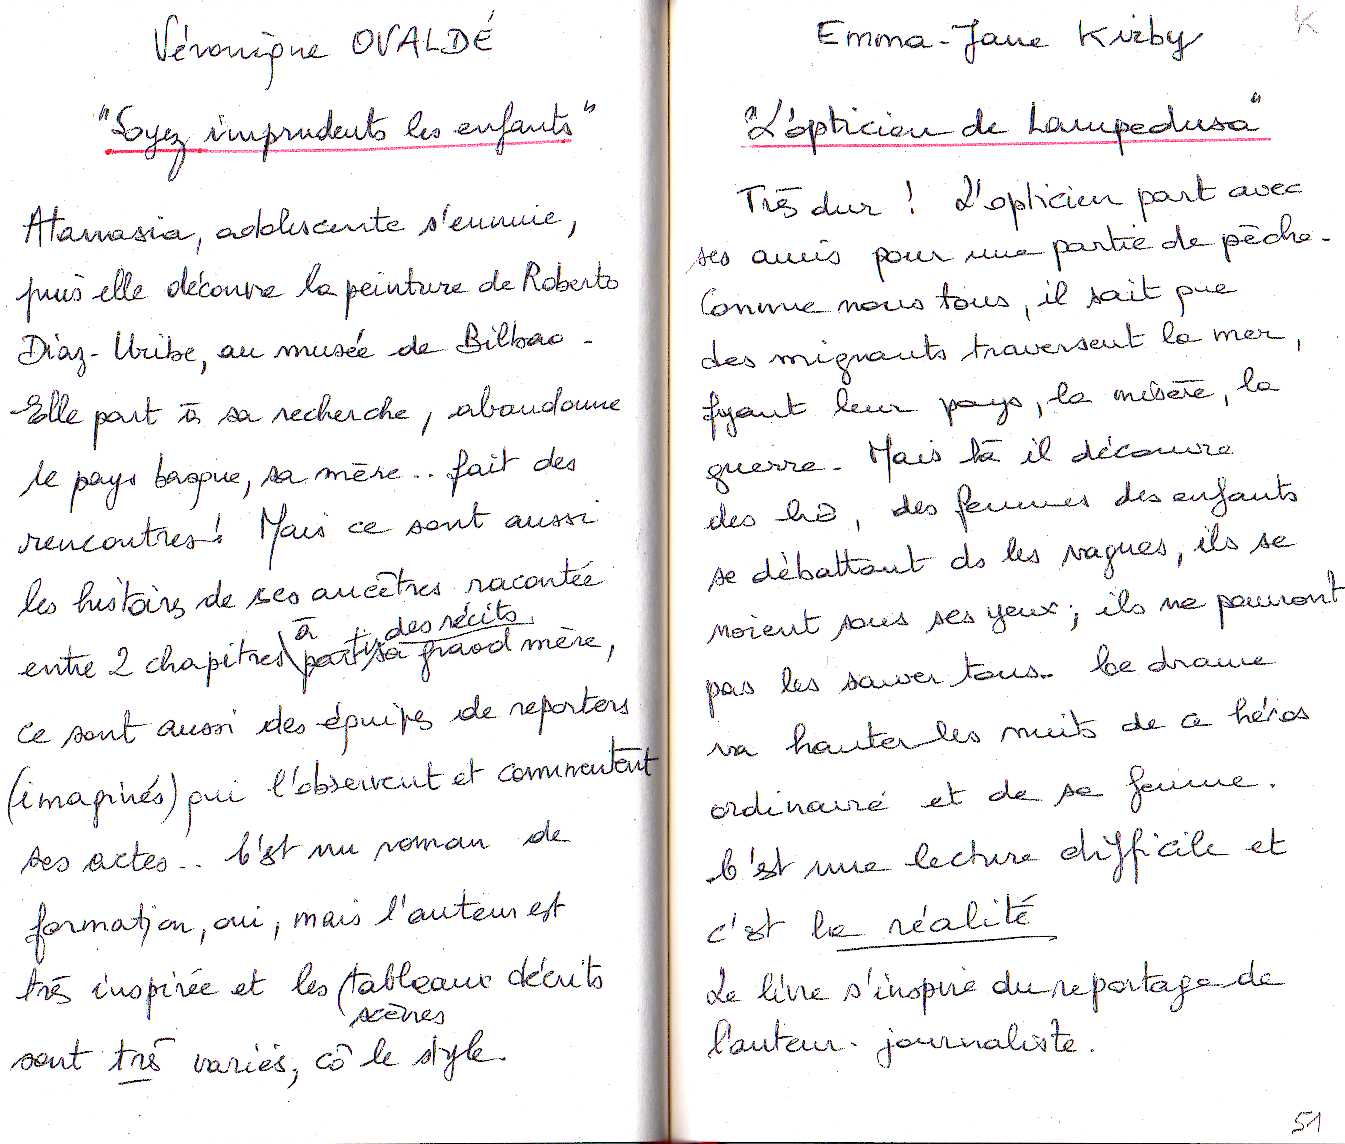 Véronique OVALDÉ
"Soyez imprudents les enfants"
Atanasia, adolescente s'ennuie,
puis elle découvre la peinture de Roberto
Diaz-Uribe, au musée de Bilbao -
Elle part à sa recherche, abandonne
le pays basque, sa mère .. fait des
rencontres! Mais ce sont aussi
les histoires de ses ancêtres racontée
à + des récits
entre 2 chapitres part sa grand mère,
ce sont aussi des équipes de reporters
(imaginés) qui l'observent et commentent
ses actes .. C'est un roman de
formation, oui, mais l'auteur est
très inspirée et les (tableaux décrits
scènes
sont très variés, cô le style.
Emma-Jane Kirby
K
"L'opticien de Lampedusa"
Très dur ! L'opticien part avec
ses amis pour une partie de pêche -
Comme nous tous, il sait que
des migrants traversent la mer,
fyant leur pays, la misère, la
guerre - Mais là il découvre
des ho, des femmes des enfants
se débattant ds les vagues, ils se
noient sous ses yeux; ils ne pourront
pas les sauver tous.. Ce drame
va hanter les nuits de ce héros
ordinaire et de sa femme.
C'est une lecture difficile et
c'est la réalité
Le livre s'inspire du reportage de
l'auteur - journaliste.
51